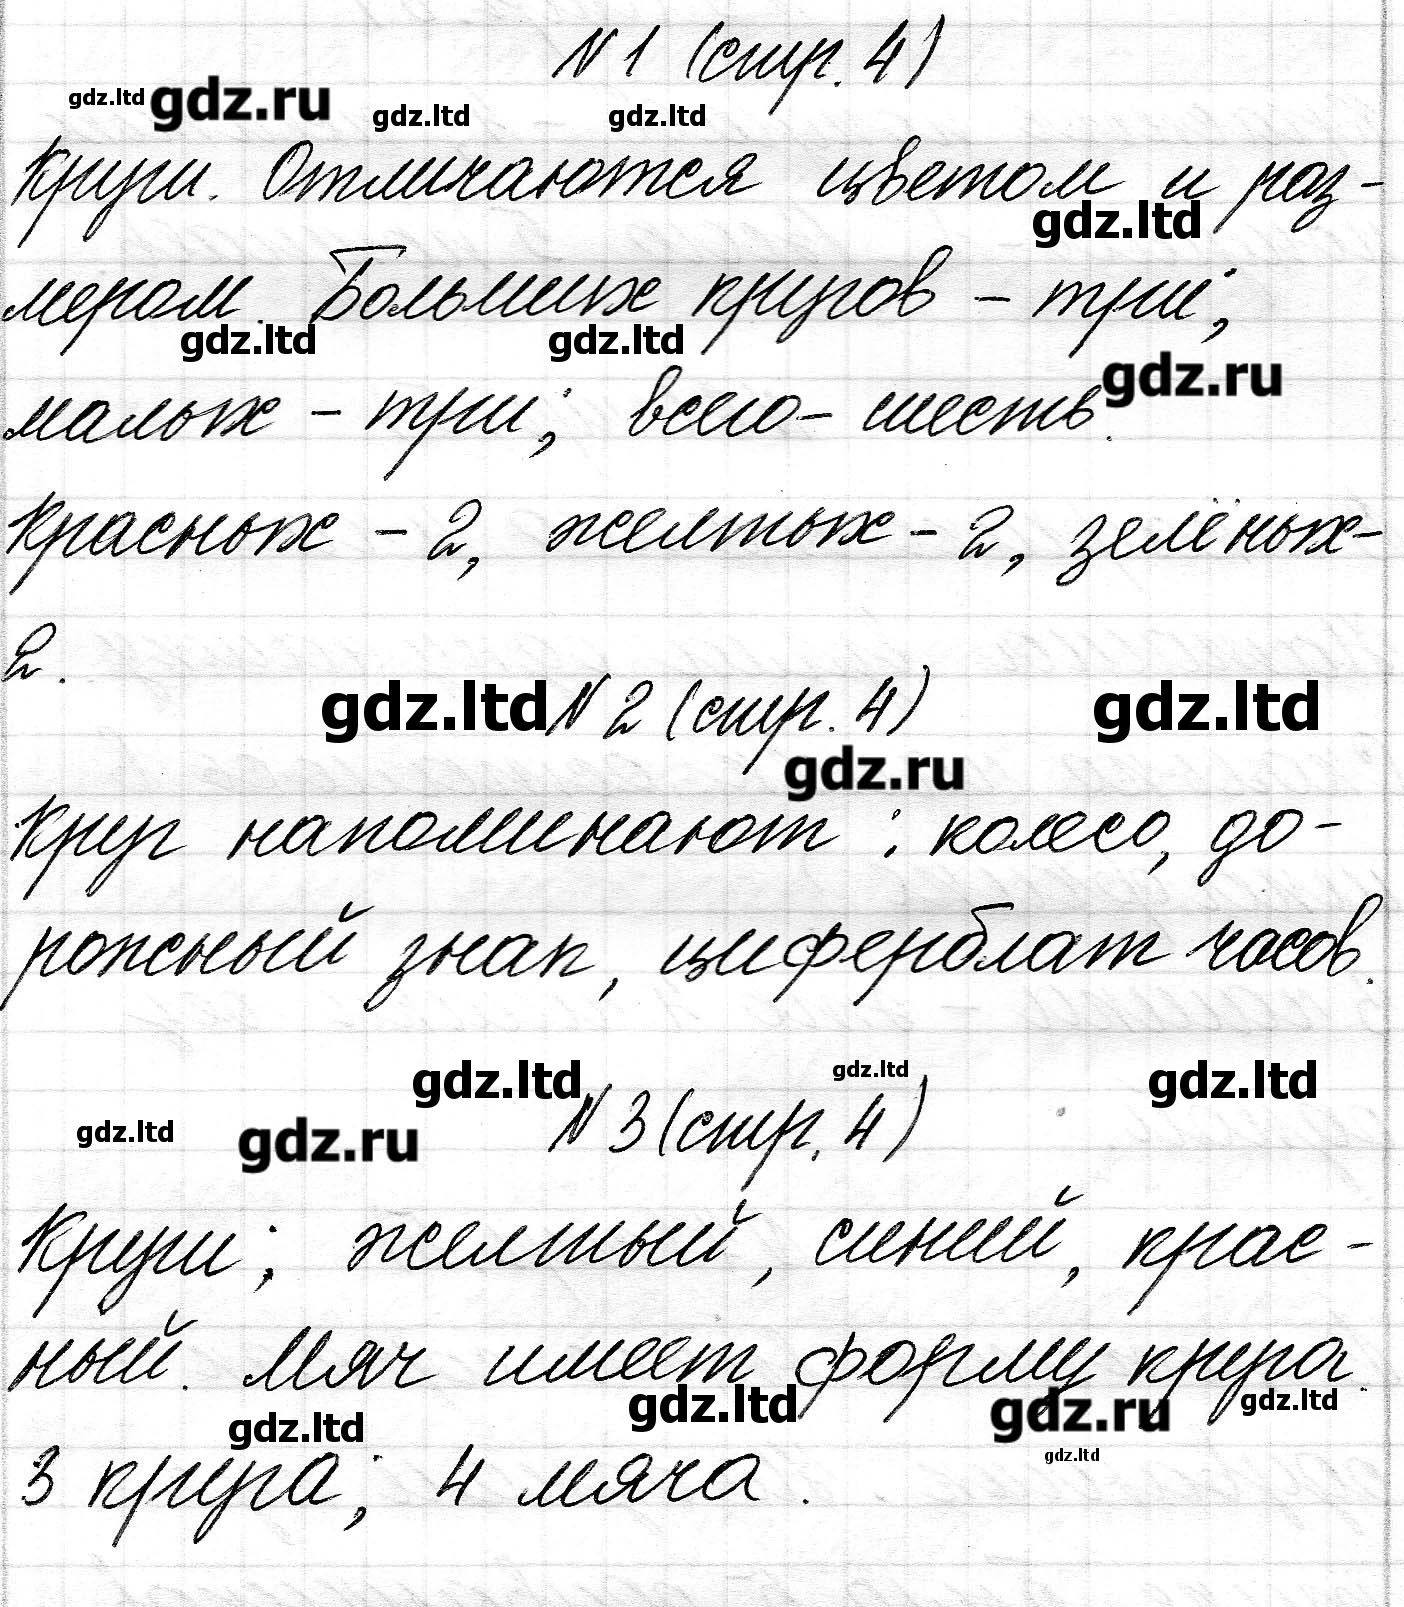 N 1 (стр. 4)
gdz.ltd gdz.ru gdz.ltd gdz.ltd
Круги. Отличаются цветом и раз-
gdz.ltd
мером. Больших кругов - три;
gdz.ltd gdz.ltd
gdz.ru
малых - три; всего - шесть.
Красных - 2, желтых - 2, зелёных -
2.
gdz.ltd N 2 (стр. 4) gdz.ltd
gdz.ru
Круг напоминают : колесо, до-
рожный знак, циферблат часов.
gdz.ltd gdz.ltd gdz.ltd
N 3 (стр. 4)
gdz.ltd gdz.ru
Круги; желтый, синий, крас-
ный. Мяч имеет форму круга.
gdz.ltd gdz.ltd gdz.ru gdz.ltd
gdz.ltd
3 круга; 4 мяча.